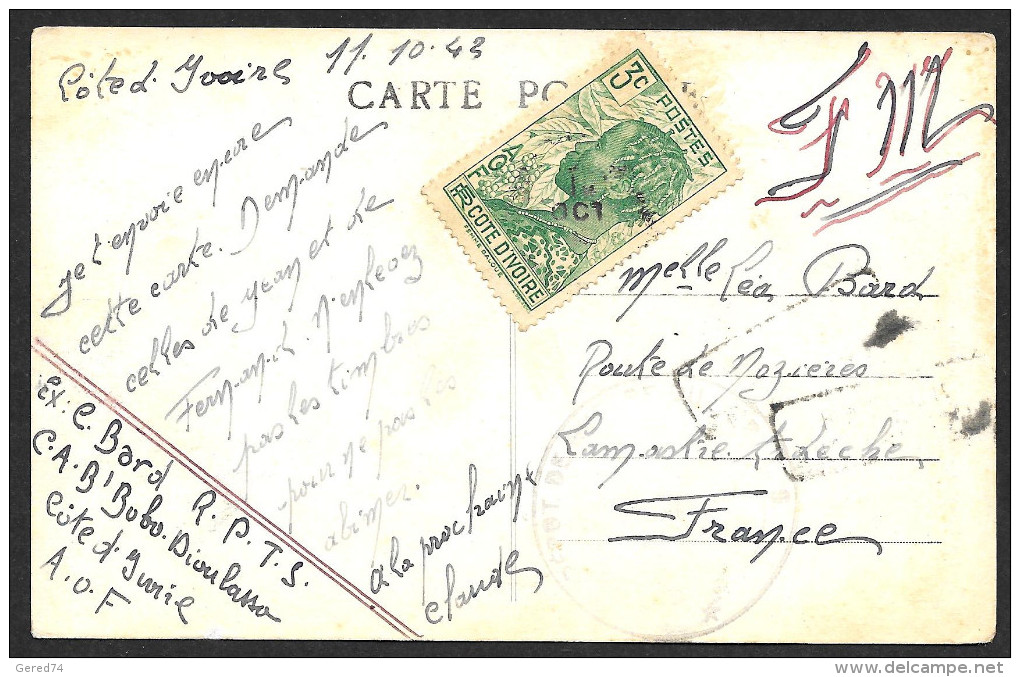 Côte d. Ivoire 11.10.43
CARTE PO
F M
3c POSTES
AOF
RF COTE D'IVOIRE
OCT
Je t envoie encore
cette carte. Demande
celles de yvan et de
Fernand. N'enlevez
pas les timbres
pour ne pas les
abimer.
a la prochaine
Claude
Melle Léa Bard
Route de Nozières
Lamastre Ardèche
France
Ex: C. Bard R.P.T.S.
C.A.B' Bobo. Dioulasso
Côte d. Ivoire
A.O.F
Gered74
www.delcampe.net